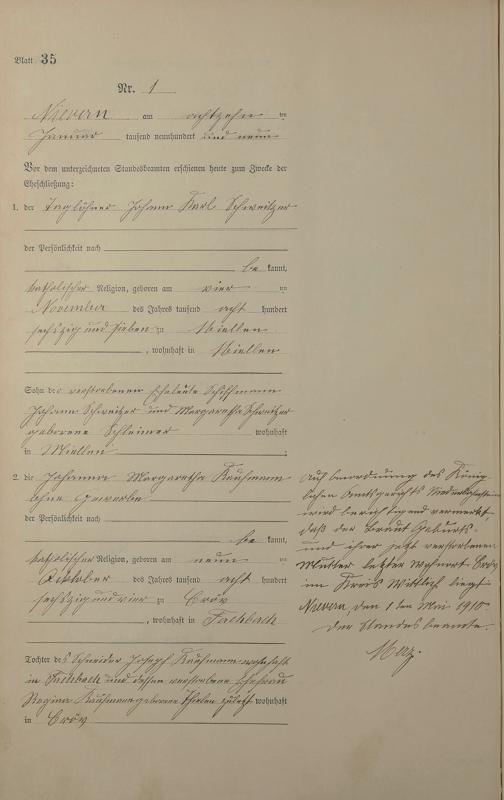 Blatt 35
Nr. 1
Nievern am achtzehn ten
Januar tausend neunhundert und neun
Vor dem unterzeichneten Standesbeamten erschienen heute zum Zwecke der
Eheschließung:
1. der Taglöhner Johann Karl Schweitzer
der Persönlichkeit nach
be kannt,
katholischer Religion, geboren am vier ten
November des Jahres tausend acht hundert
sechszig und sieben zu Miellen
, wohnhaft in Miellen
Sohn der verstorbenen Eheleute Schiffmann
Johann Schweitzer und Margaretha Schweitzer
geborene Schleimer wohnhaft
in Miellen
2. die Johanna Margaretha Kaufmann
ohne Gewerbe
der Persönlichkeit nach
be kannt,
katholischer Religion, geboren am neun ten
Oktober des Jahres tausend acht hundert
sechszig und vier zu Cröv
, wohnhaft in Fachbach
Tochter des Schneider Joseph Kaufmann wohnhaft
in Fachbach und dessen verstorbene Ehefrau
Regina Kaufmann geborene Thielen zuletzt wohnhaft
in Cröv
Auf Anordnung des König-
lichen Amtsgerichts Niederlahnstein
wird berichtigend vermerkt,
daß der Braut Geburts-
und ihrer jetzt verstorbenen
Mutter letzter Wohnort Cröv
im Kreis Wittlich liegt
Nievern, den 1 ten Mai 1910
Der Standesbeamte.
Merz.